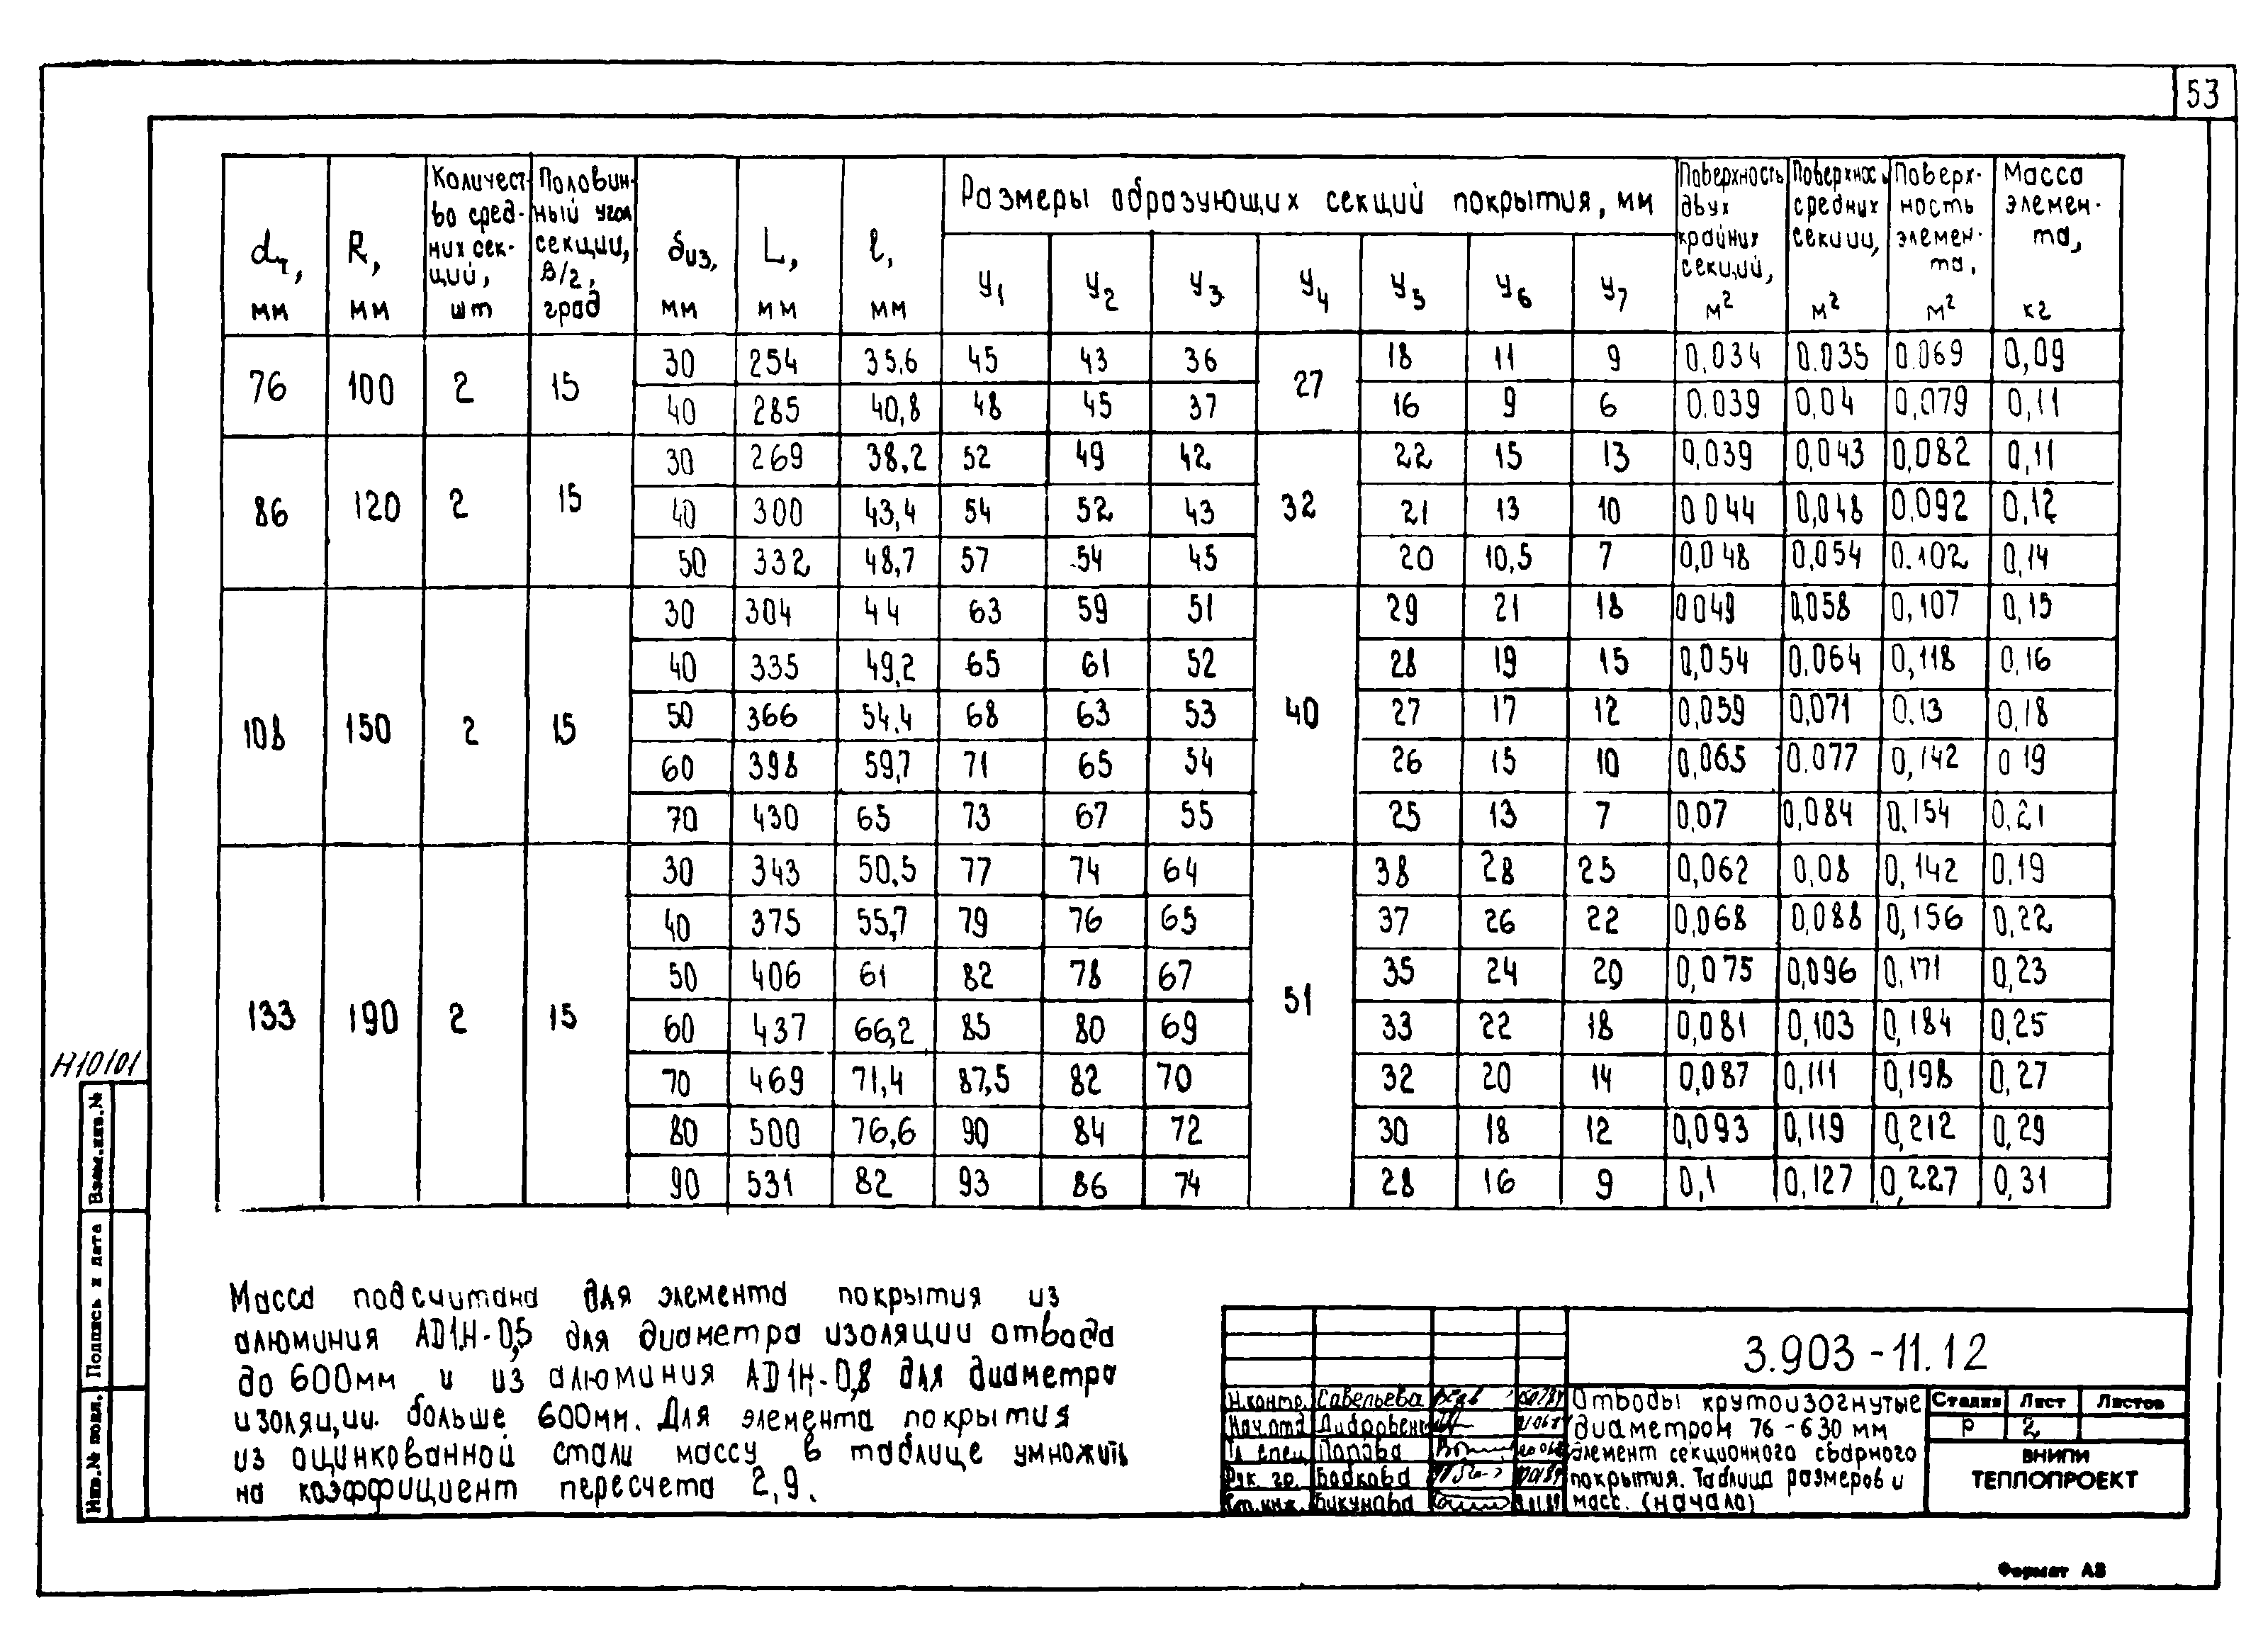 53
dч, мм
R, мм
Количест-
во сред-
них сек-
ций,
шт
Половин-
ный угол
секции,
β/2,
град
δиз, мм
L, мм
ℓ, мм
Размеры образующих секций покрытия, мм
У1 У2 У3 У4 У5 У6 У7
Поверхность
двух
крайних
секций,
м2
Поверхнос
средних
секции,
м2
Поверх-
ность
элемен-
та,
м2
Масса
элемен-
та,
кг
76 100 2 15 30 254 35,6 45 43 36 27 18 11 9 0,034 0.035 0.069 0,09
40 285 40,8 48 45 37 16 9 6 0.039 0,04 0,079 0,11
86 120 2 15 30 269 38,2 52 49 42 32 22 15 13 0,039 0,043 0,082 0,11
40 300 43,4 54 52 43 21 13 10 0 044 0,048 0.092 0,12
50 332 48,7 57 54 45 20 10,5 7 0,048 0,054 0.102 0,14
108 150 2 15 30 304 44 63 59 51 40 29 21 18 0049 0,058 0,107 0,15
40 335 49,2 65 61 52 28 19 15 0,054 0,064 0,118 0,16
50 366 54,4 68 63 53 27 17 12 0,059 0,071 0,13 0,18
60 398 59,7 71 65 54 26 15 10 0,065 0.077 0,142 0 19
70 430 65 73 67 55 25 13 7 0,07 0,084 0,154 0,21
133 190 2 15 30 343 50,5 77 74 64 51 38 28 25 0,062 0,08 0,142 0,19
40 375 55,7 79 76 65 37 26 22 0,068 0,088 0,156 0,22
50 406 61 82 78 67 35 24 20 0,075 0,096 0,171 0,23
60 437 66,2 85 80 69 33 22 18 0,081 0,103 0,184 0,25
70 469 71,4 87,5 82 70 32 20 14 0,087 0,111 0,198 0,27
80 500 76,6 90 84 72 30 18 12 0,093 0,119 0,212 0,29
90 531 82 93 86 74 28 16 9 0,1 0,127 0,227 0,31
Масса подсчитана для элемента покрытия из
алюминия АД1.Н-0,5 для диаметра изоляции отвода
до 600мм и из алюминия АД1Н-0,8 для диаметра
изоляции больше 600мм. Для элемента покрытия
из оцинкованной стали массу в таблице умножить
на коэффициент пересчета 2,9.
Н10101
Взам.инв.№
Подпись и дата
Инв.№ подл.
3.903-11.12
Н.контр. Савельева
Нач.отд
Гл спец Попова
Рук. гр. Бобкова
Ст.инж. Бикунова
Отводы крутоизогнутые
диаметром 76-630 мм
Элемент секционного сварного
покрытия. Таблица размеров и
масс. (начало)
Стадия Лист Листов
Р 2
ВНИПИ
ТЕПЛОПРОЕКТ
Формат А3